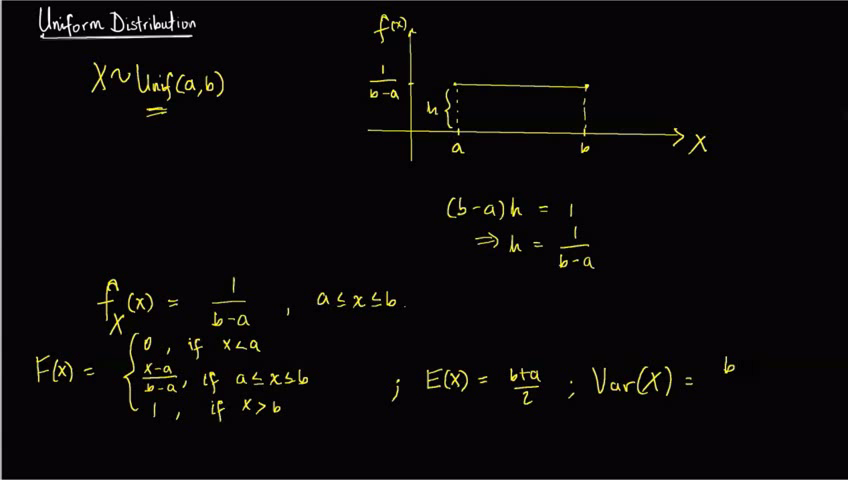 Uniform Distribution
X ~ Unif(a,b)
f(x)
1/(b-a)
h {
a b X
(b-a)h = 1
⇒ h = 1/(b-a)
f_X(x) = 1/(b-a) , a ≤ x ≤ b.
F(x) = { 0 , if x<a
(x-a)/(b-a) , if a ≤ x ≤ b
1 , if x > b
; E(X) = (b+a)/2 ; Var(X) = b